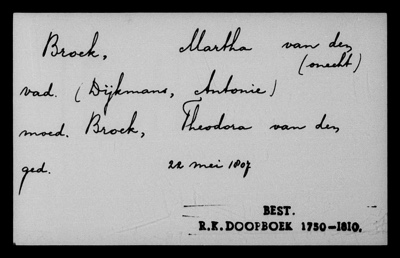 Broek, Martha van den
(onecht)
vad. (Dijkmans, Antonie)
moed. Broek, Theodora van den
ged. 22 mei 1807
BEST.
R.K.DOOPBOEK 1750-1810.